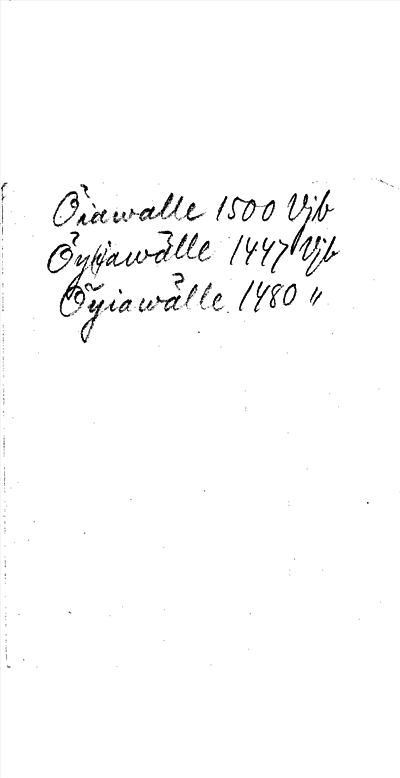 Öiawalle 1500 Vjb
Öy(i)awålle 1447 Vjb
Öyiawålle 1480 "